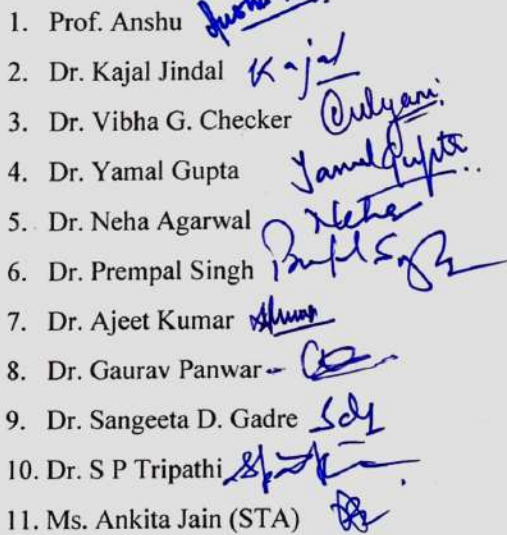 1. Prof. Anshu
2. Dr. Kajal Jindal Kajal
3. Dr. Vibha G. Checker
4. Dr. Yamal Gupta Yamal Gupta
5. Dr. Neha Agarwal Neha
6. Dr. Prempal Singh
7. Dr. Ajeet Kumar
8. Dr. Gaurav Panwar -
9. Dr. Sangeeta D. Gadre
10. Dr. S P Tripathi
11. Ms. Ankita Jain (STA)